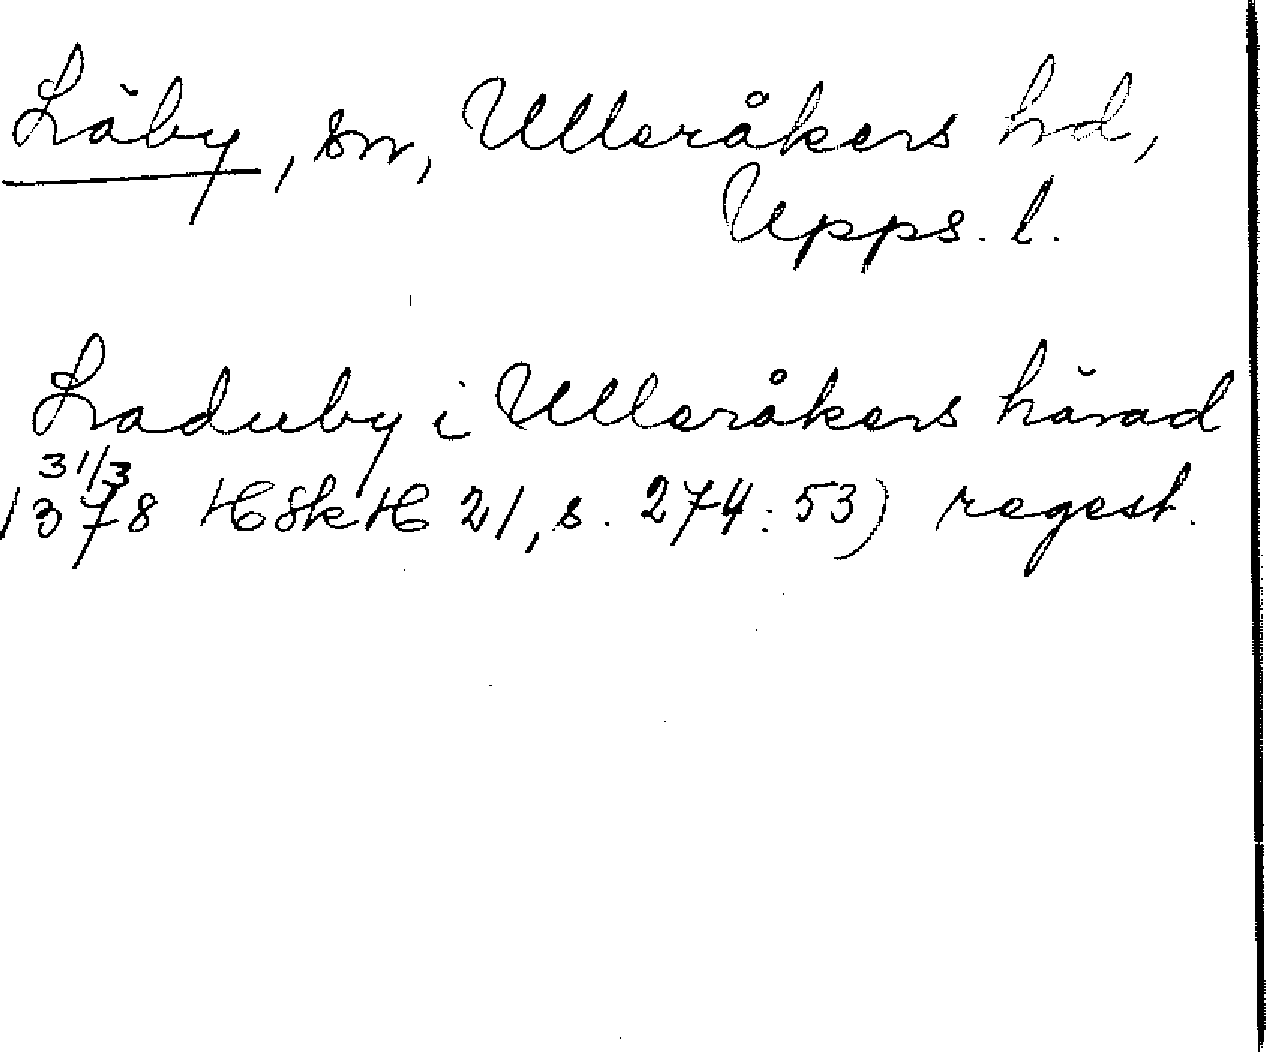 Läby, sn, Ulleråkers hd,
Upps. l.
Laduby i Ulleråkers härad
31/3
1378 HSkH 21, s. 274: 53) regest.